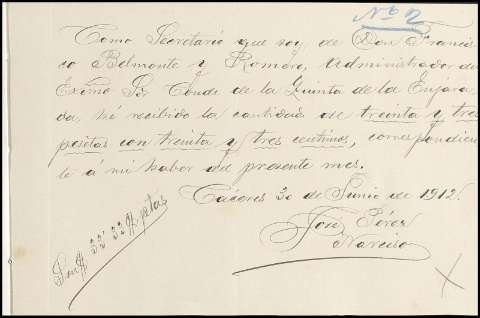 Nº 12
Como Secretario que soy de Don Francis
co Belmonte y Romero, Administrador del
Excmo Sor Conde de la Quinta de la Enjara
da, hé recibido la cantidad de treinta y tres
pesetas con treinta y tres centimos, correspondien
te á mi haber del presente mes.
Cáceres 30 de Junio de 1912.
José Pérez
Narciso
Son # 33'33 # ptas